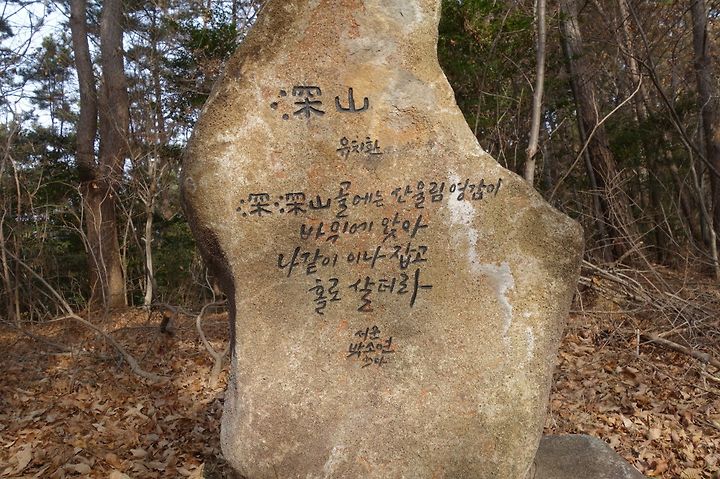 深山
유치환
深深山골에는 산울림 영감이
바위에 앉아
나같이 이나 잡고
홀로 살더라
박소연